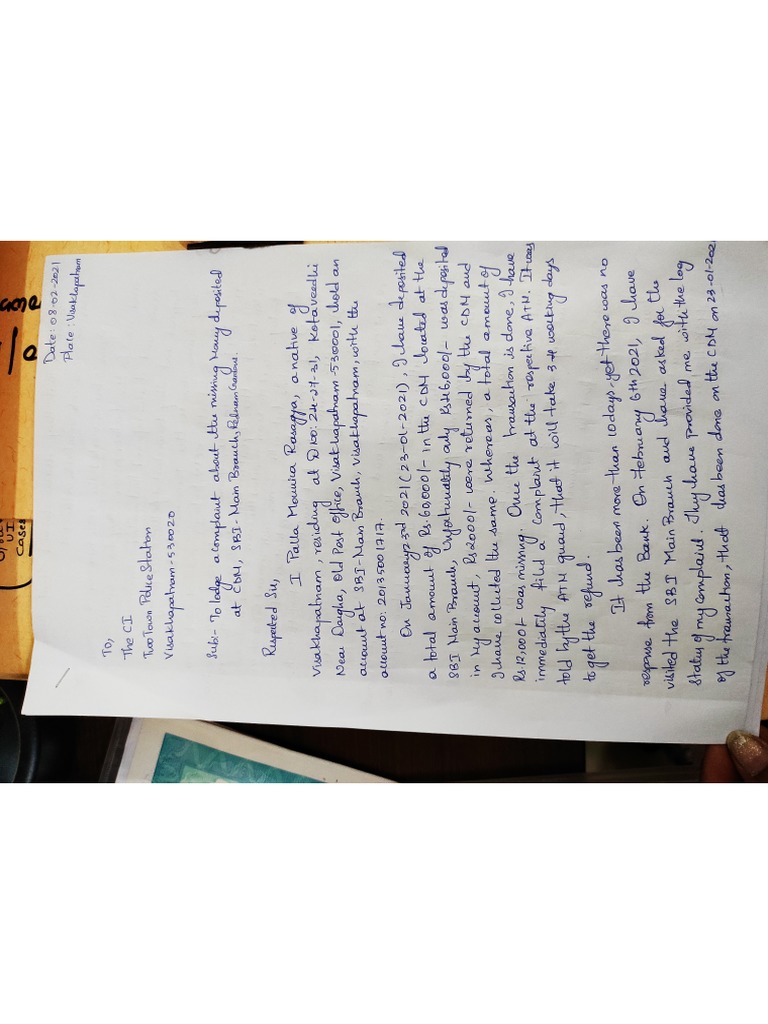 Date: 08-02-2021
Place: Visakhapatnam
To,
The CI
Two Town Police Station
Visakhapatnam-530020
Sub:- To lodge a complaint about the missing money deposited
at CDM, SBI-Main Branch,
Respected Sir,
I Palla Mounica Ravagya, a native of
Visakhapatnam, residing at D.no: 24-27-31, Kotaveedhi
Near Dargha, Old Post Office, Visakhapatnam-530001, hold an
account at SBI-Main Branch, Visakhapatnam, with the
account no: 20135001717.
On January 23rd 2021 (23-01-2021), I have deposited
a total amount of Rs.60,000/- in the CDM located at the
SBI Main Branch, Unfortunately only Rs.46,000/- was deposited
in my account, Rs 2000/- were returned by the CDM and
I have collected the same. Whereas, a total amount of
Rs.12,000/- was missing. Once the transaction is done, I have
immediately filed a complaint at the respective ATM. It was
told by the ATM guard, that it will take working days
to get the refund.
It has been more than 10 days- yet there was no
response from the Bank. On February 6th 2021, I have
visited the SBI Main Branch and have asked for the
status of my complaint. They have provided me with the log
of the transaction, that has been done on the CDM on 23-01-202
UI
Cases